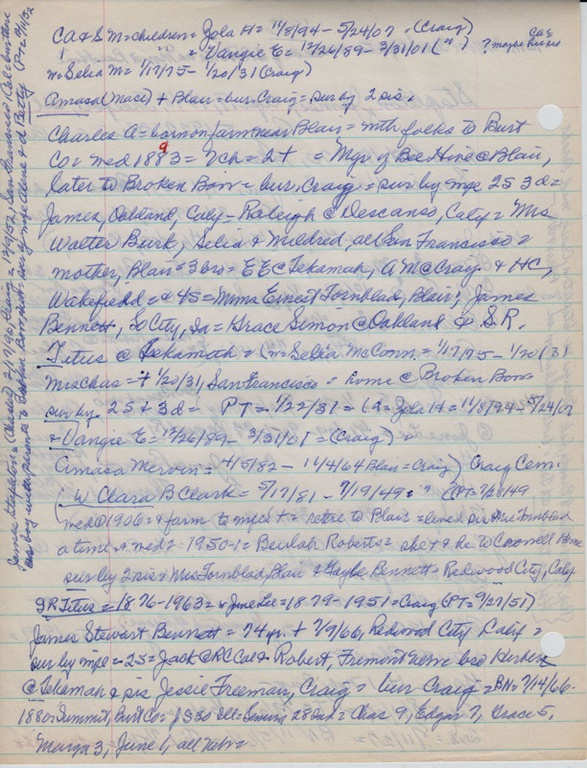 CA & S M = children = Zola H = 11/8/94 - 5/24/07 (Craig)
" " = Vangie E = 12/26/89 - 3/31/01 ( " ) ? maybe
CA &
m = Selia M = 1/17/75 - 1/20/31 (Craig)
Amasa (Mace) + Blair = bur. Craig = sur by 2 sis.
Charles A = born on farm near Blair = with folks to Burt
Co = med 1893 = 7 ch = 2 + = Mgr of Bee Hive @ Blair,
later to Broken Bow = bur. Craig = sur by mpe 2S 3d =
James, Oakland, Caly - Raleigh @ Descanso, Caly = Mrs
Walter Burk, Selia & Mildred, all San Francisco =
mother, Blair = 3 bro = E E @ Tekamah, A M @ Craig & HC,
Wakefield = & 4S = Mmes Ernest Fornblad, Blair; James
Bennett, So City, Ia = Grace Simon @ Oakland & S.R.
Titus @ Tekamah = (m = Selia McConn = 1/17/75 - 1/20/31
Mrs Chas = + 1/20/31, San Francisco = home @ Broken Bow =
sur by 2S + 3d = PT = 1/22/31 = (d = Zola H = 11/8/1894 - 5/24/07
& Vangie E = 12/26/89 - 3/31/01 = (Craig)
Amasa Mervin = 4/5/82 - 11/4/64 Blair = Craig) Craig Cem.
W Clara B Clark = 5/17/81 - 7/19/49 = " (PT = 7/28/49
med @ 1906 = & farm to mpe's + = retire to Blair = lived sis Mrs Fornblad
a time & med = 1950-1 = Beulah Roberts = she + & he to Crowell Home
sur by 2 sis = Mrs Fornblad, Blair & Gayle Bennett = Redwood City, Caly
S R Titus = 1876-1963 = w June Lee = 1879-1951 = Craig (PT = 9/27/51)
James Stewart Bennett = 74 yr. + 7/9/66, Redwood City, Calif =
sur by mpe = 2S = Jack @ RC Cal & Robert, Fremont Nebr bro Herbert
@ Tekamah & sis Jessie Freeman, Craig = bur Craig = BN = 7/14/66 -
1880 = Summit, Burt Co = J S 30 Ill = 28 Ind = Chas 9, Edgar 7, Grace 5,
3, June 1, all Nebr =
James Stapleton = (Chessie) 2/7/96, Craig = 1/9/52, San Francisco = (Cal bur there
sur by with parents to Broken Bow = sur by mpe Aline & d Betty (PT = 2/14/52